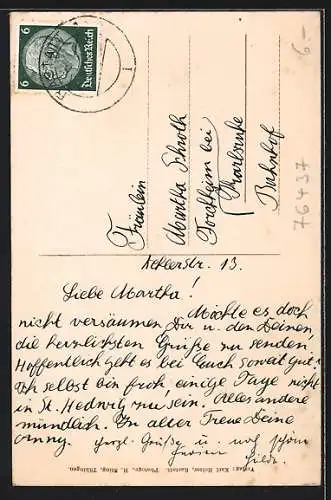 6
6
Deutsches Reich
6.-
76437
Fräulein
Martha Schroth
Forchheim bei
Karlsruhe
Bahnhof
str. 13.
Liebe Martha!
Möchte es doch
nicht versäumen Dir u. den Deinen,
die herzlichsten Grüße zu senden.
Hoffentlich geht es bei Euch soweit gut.
Ich selbst bin froh, einige Tage nicht
in St. Hedwig zu sein. Alles andere
mündlich. In alter Treue Deine
Anny. Herzl. Grüße u. noch schöne
Hilde.
Verlag: Karl Rastatt. Photogr. H. Tübingen.